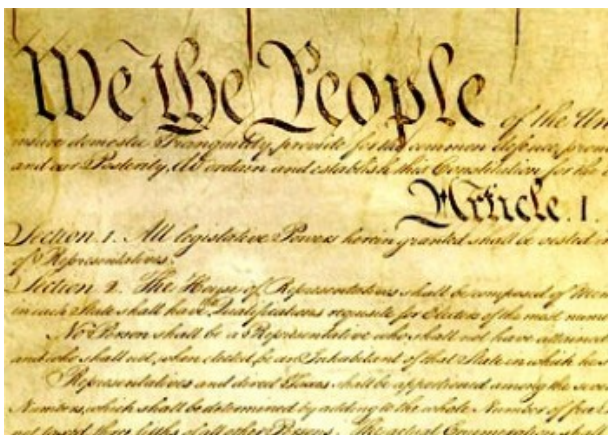 We the People of the Un
insure domestic Tranquility, provide for the common defence, prom
and our Posterity, do ordain and establish this Constitution for the
Article. I.
Section. 1. All legislative Powers herein granted shall be vested i
of Representatives.
Section. 2. The House of Representatives shall be composed of Mem
in each State shall have the Qualifications requisite for Electors of the most nume
No Person shall be a Representative who shall not have attained
and who shall not, when elected, be an Inhabitant of that State in which he s
Representatives and direct Taxes shall be apportioned among the seve
Numbers, which shall be determined by adding to the whole Number of free
not taxed, three fifths of all other Persons. The actual Enumeration shall